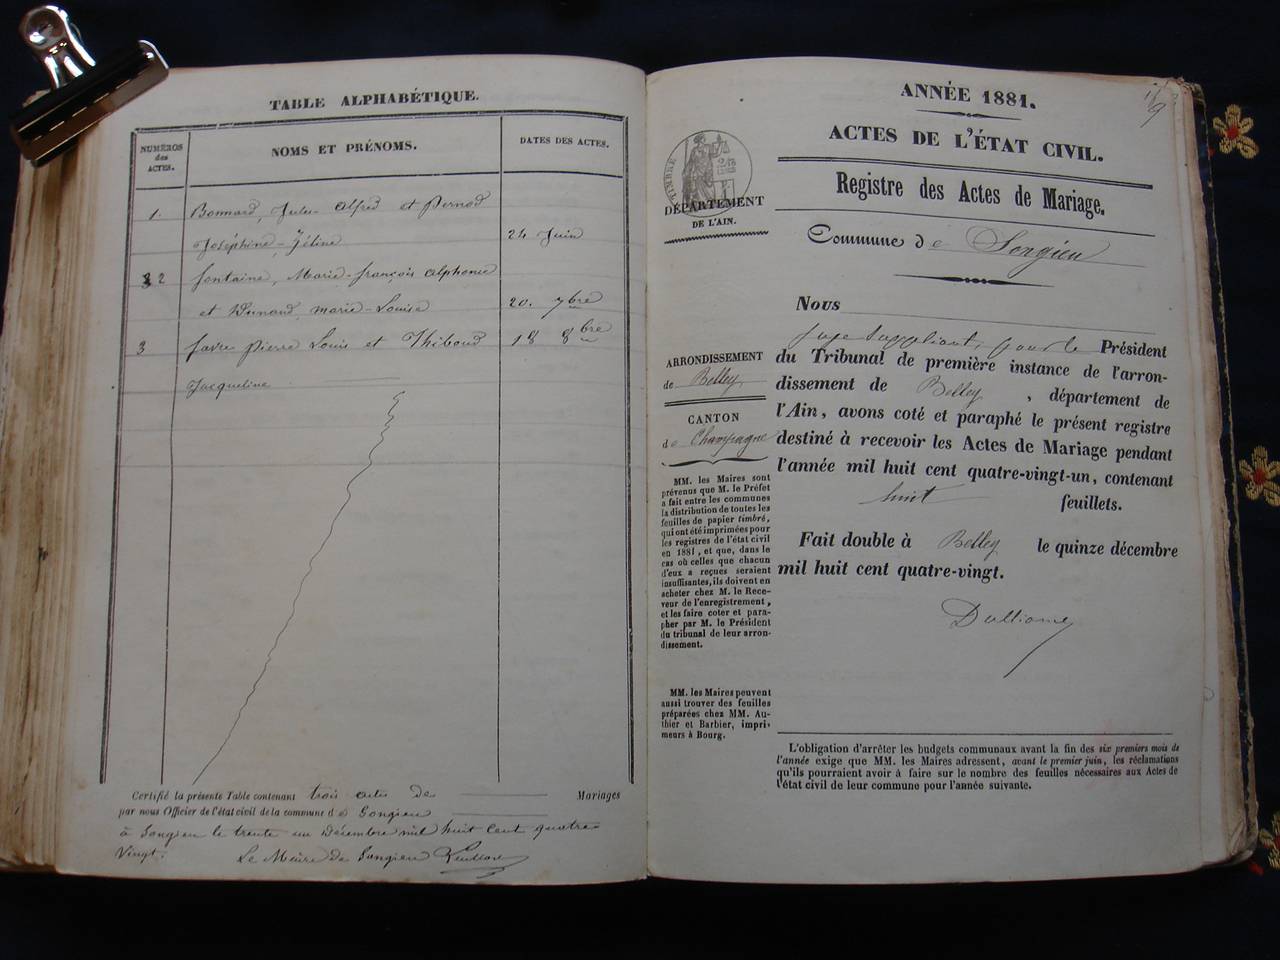 TABLE ALPHABÉTIQUE.
NUMÉROS
des
ACTES.
NOMS ET PRÉNOMS.
DATES DES ACTES.
1. Bonnard, Jules Alfred et Pernod
Joséphine-Zéline 24 Juin
2 fontaine, Marie-françois alphonse
et Dunand, marie-Louise 20. 7bre
3 favre Pierre Louis et Thiboud 18 8bre
Jacqueline
Certifié la présente Table contenant trois actes de Mariages
par nous Officier de l'état civil de la commune de Songieu
à Songieu le trente un Décembre mil huit cent quatre-
vingt. Le Maire de Songieu
ANNÉE 1881.
ACTES DE L'ÉTAT CIVIL.
TIMBRE
DÉPARTEMENT
DE L'AIN.
Registre des Actes de Mariage.
Commune de Songieu
Nous
juge suppléant, pour le Président
du Tribunal de première instance de l'arron-
dissement de Belley, département de
l'Ain, avons coté et paraphé le présent registre
destiné à recevoir les Actes de Mariage pendant
l'année mil huit cent quatre-vingt-un, contenant
huit feuillets.
Fait double à Belley le quinze décembre
mil huit cent quatre-vingt.
ARRONDISSEMENT
de Belley
CANTON
de Champagne
MM. les Maires sont
prévenus que M. le Préfet
a fait entre les communes
la distribution de toutes les
feuilles de papier timbré,
qui ont été imprimées pour
les registres de l'état civil
en 1881, et que, dans le
cas où celles que chacun
d'eux a reçues seraient
insuffisantes, ils doivent en
acheter chez M. le Rece-
veur de l'enregistrement,
et les faire coter et para-
pher par M. le Président
du tribunal de leur arron-
dissement.
MM. les Maires peuvent
aussi trouver des feuilles
préparées chez MM. Au-
thier et Barbier, impri-
meurs à Bourg.
L'obligation d'arrêter les budgets communaux avant la fin des six premiers mois de
l'année exige que MM. les Maires adressent, avant le premier juin, les réclamations
qu'ils pourraient avoir à faire sur le nombre des feuilles nécessaires aux Actes de
l'état civil de leur commune pour l'année suivante.